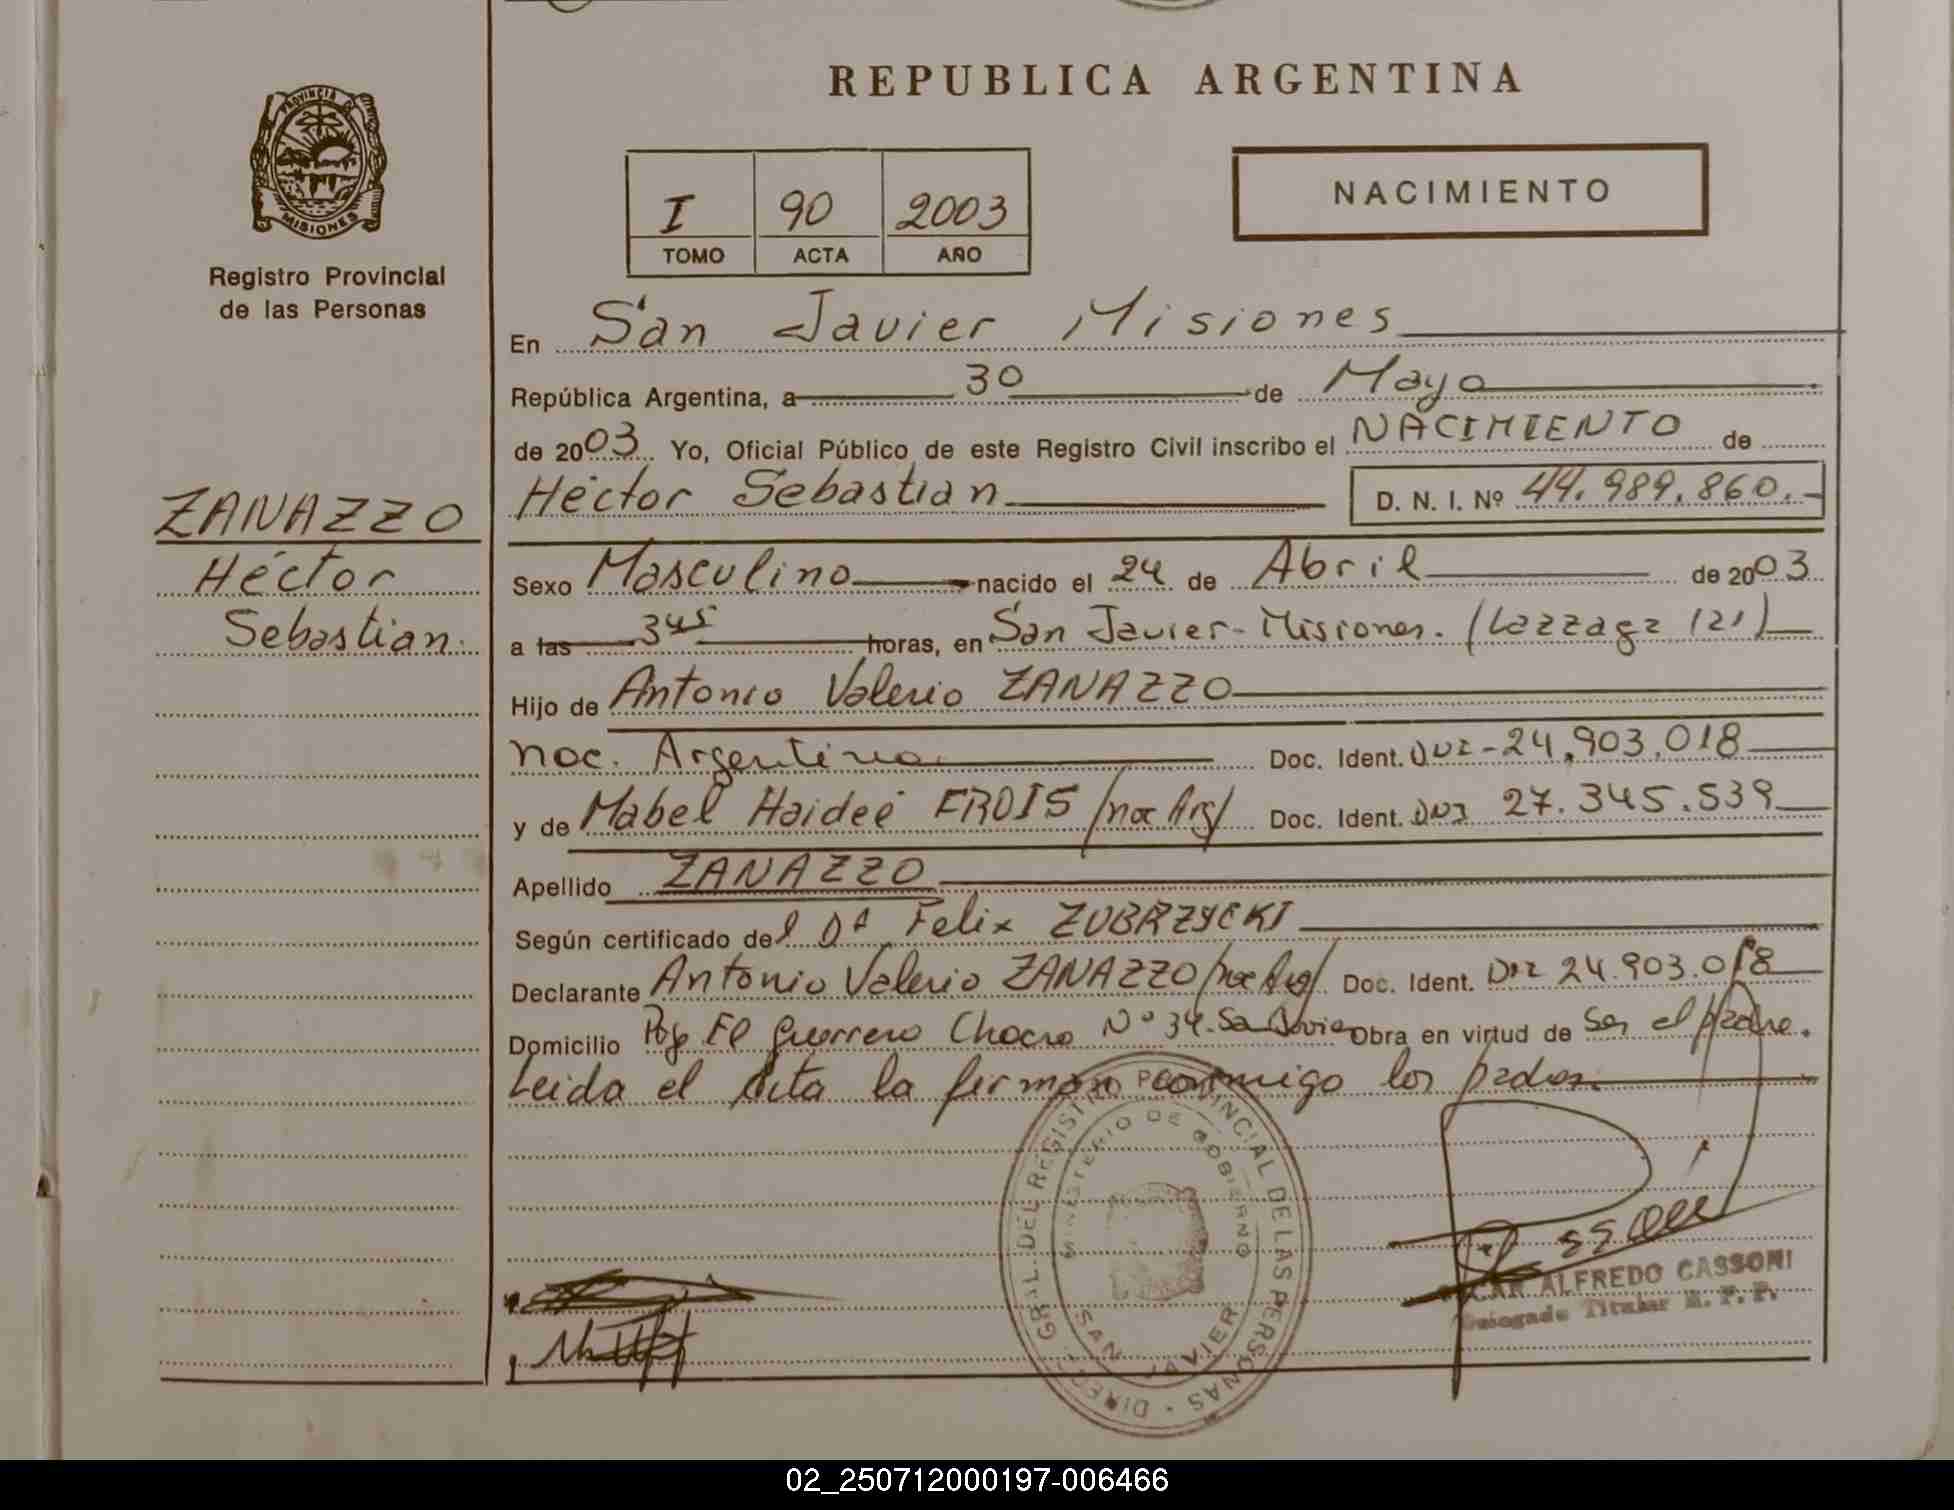 PROVINCIA DE
MISIONES
Registro Provincial
de las Personas
ZANAZZO
Héctor
Sebastian.
REPUBLICA ARGENTINA
I 90 2003
TOMO ACTA AÑO
NACIMIENTO
En San Javier Misiones
República Argentina, a 30 de Mayo
de 2003 Yo, Oficial Público de este Registro Civil inscribo el NACIMIENTO de
Héctor Sebastian D. N. I. Nº 44.989.860.-
Sexo Masculino nacido el 24 de Abril de 2003
a las 345 horas, en San Javier - Misiones. (Lazzaga 121)
Hijo de Antonio Valerio ZANAZZO
nac. Argentina Doc. Ident. DNI - 24.903.018
y de Mabel Haideé FROIS /nac Arg/ Doc. Ident. DNI 27.345.539
Apellido ZANAZZO
Según certificado del Dr Felix ZUBRZYCKI
Declarante Antonio Valerio ZANAZZO /nac Arg/ Doc. Ident. DNI 24.903.018
Domicilio El Guerrero Chocro Nº 34. San Javier Obra en virtud de ser el padre.
Leida el Acta la firman conmigo los padres.
DIREC. GRAL. DEL REGISTRO PROVINCIAL DE LAS PERSONAS
MINISTERIO DE GOBIERNO
SAN JAVIER
ALFREDO CASSONI
Delegado Titular R. P. P.
02_250712000197-006466